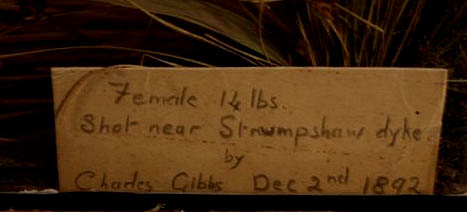 Female 14 lbs.
Shot near Strumpshaw dyke.
by
Charles Gibbs Dec 2nd 1892